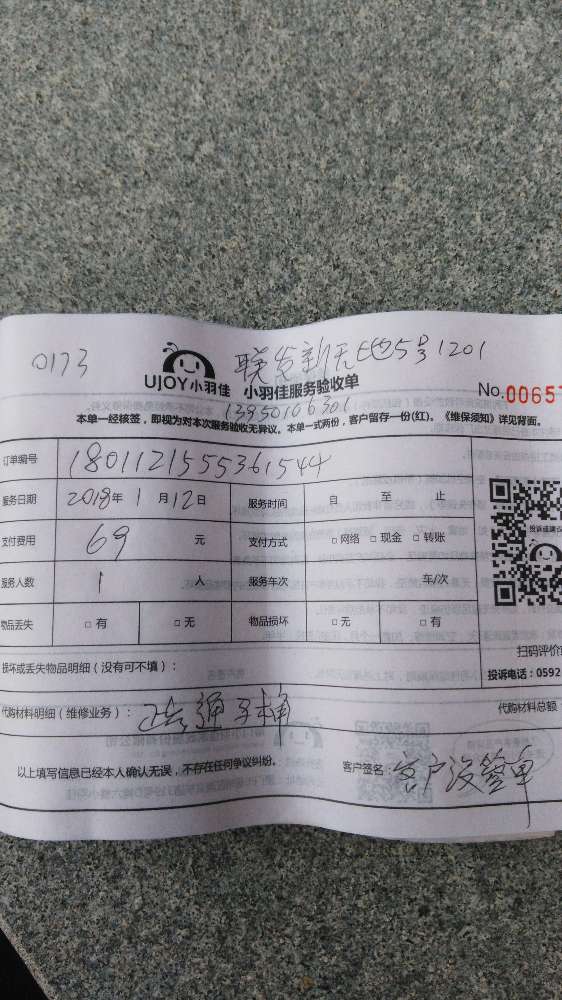 0173
联发新天地5号1201
UJOY小羽佳 小羽佳服务验收单
No.0065
13950106301
本单一经核签，即视为对本次服务验收无异议。本单一式两份，客户留存一份(红)。《维保须知》详见背面。
订单编号 1801121555361544
服务日期 2018年1月12日 服务时间 自 至 止
支付费用 69 元 支付方式 □网络 □现金 □转账
服务人数 1 人 服务车次 车/次
物品丢失 □有 □无 物品损坏 □无 □有
扫码评价
投诉电话：0592
损坏或丢失物品明细（没有可不填）：
代购材料明细（维修业务）： 通马桶
代购材料总额
以上填写信息已经本人确认无误，不存在任何争议纠纷。
客户签名： 客户没签单